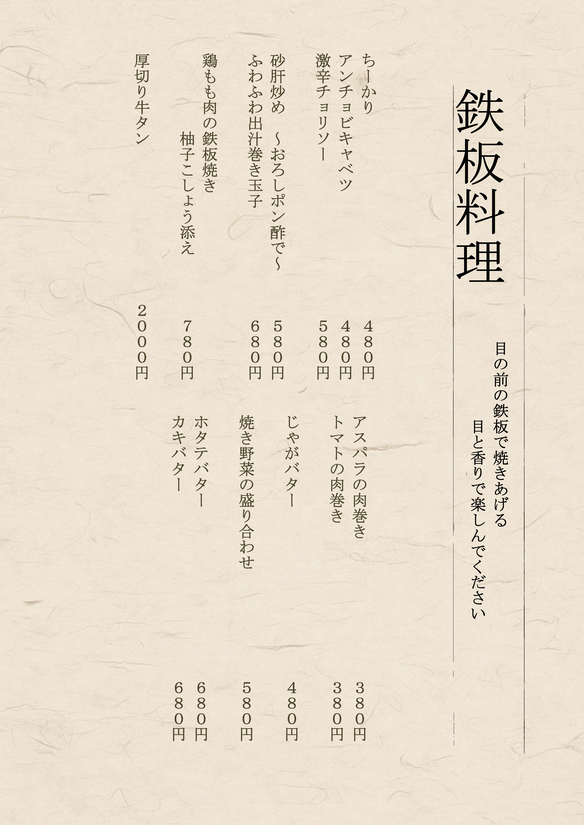 鉄板料理
目の前の鉄板で焼きあげる
目と香りで楽しんでください
ちーかり 480円
アンチョビキャベツ 480円
激辛チョリソー 580円
砂肝炒め ～おろしポン酢で～ 580円
ふわふわ出汁巻き玉子 680円
鶏もも肉の鉄板焼き
柚子こしょう添え 780円
厚切り牛タン 2000円
アスパラの肉巻き 380円
トマトの肉巻き 380円
じゃがバター 480円
焼き野菜の盛り合わせ 580円
ホタテバター 680円
カキバター 680円